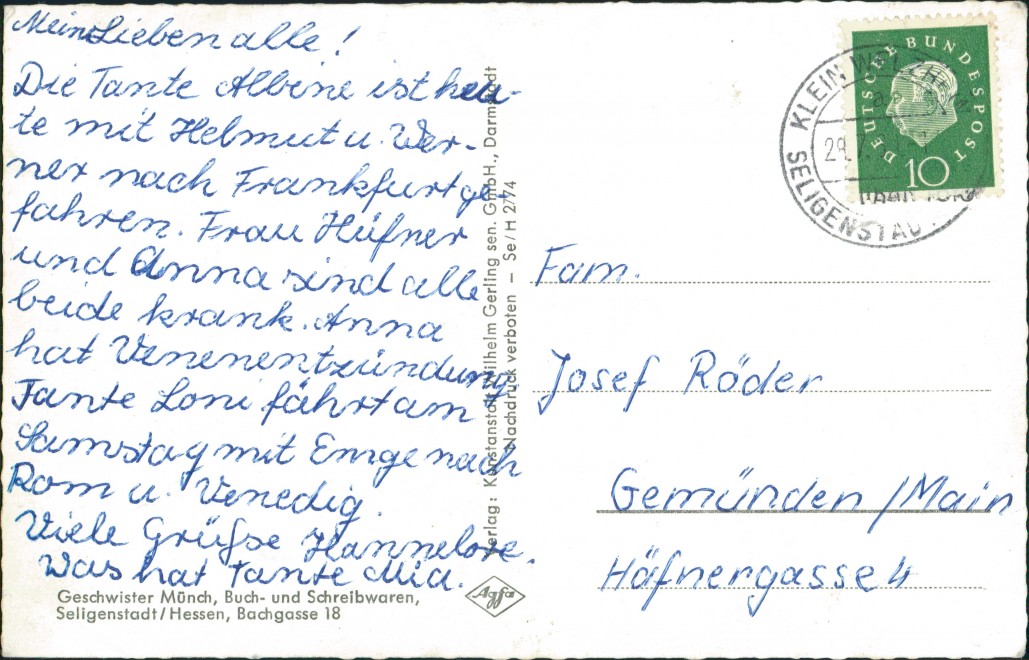 Meine Lieben alle!
Die Tante Albine ist heu-
te mit Helmut u. Wer-
ner nach Frankfurt ge-
fahren. Frau Hüfner
und Anna sind alle
beide krank. Anna
hat Venenentzündung.
Tante Loni fährt am
Samstag mit Emge nach
Rom u. Venedig.
Viele Grüße Hannelore.
Was hat Tante Mia.
Geschwister Münch, Buch- und Schreibwaren,
Seligenstadt/Hessen, Bachgasse 18
Agfa
Verlag: Kunstanstalt Wilhelm Gerling sen. GmbH., Darmstadt
Nachdruck verboten – Se/H 2774
DEUTSCHE BUNDESPOST
10
KLEIN WELZHEIM
SELIGENSTADT
Fam.
Josef Röder
Gemünden/Main
Häfnergasse 4